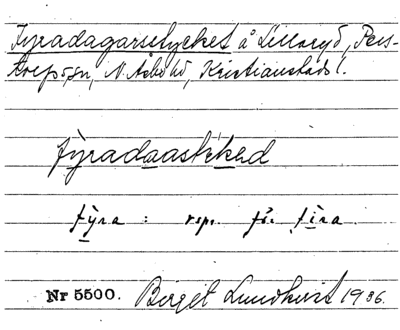 Fyradagarsstycket å Lillaryd, Pers-
torps sn, N. Åsbo hd, Kristianstads l.
fỳradaastikked
fỳra : rspr. för fira
Nr 5500. Birgit Lundkvist 1936.